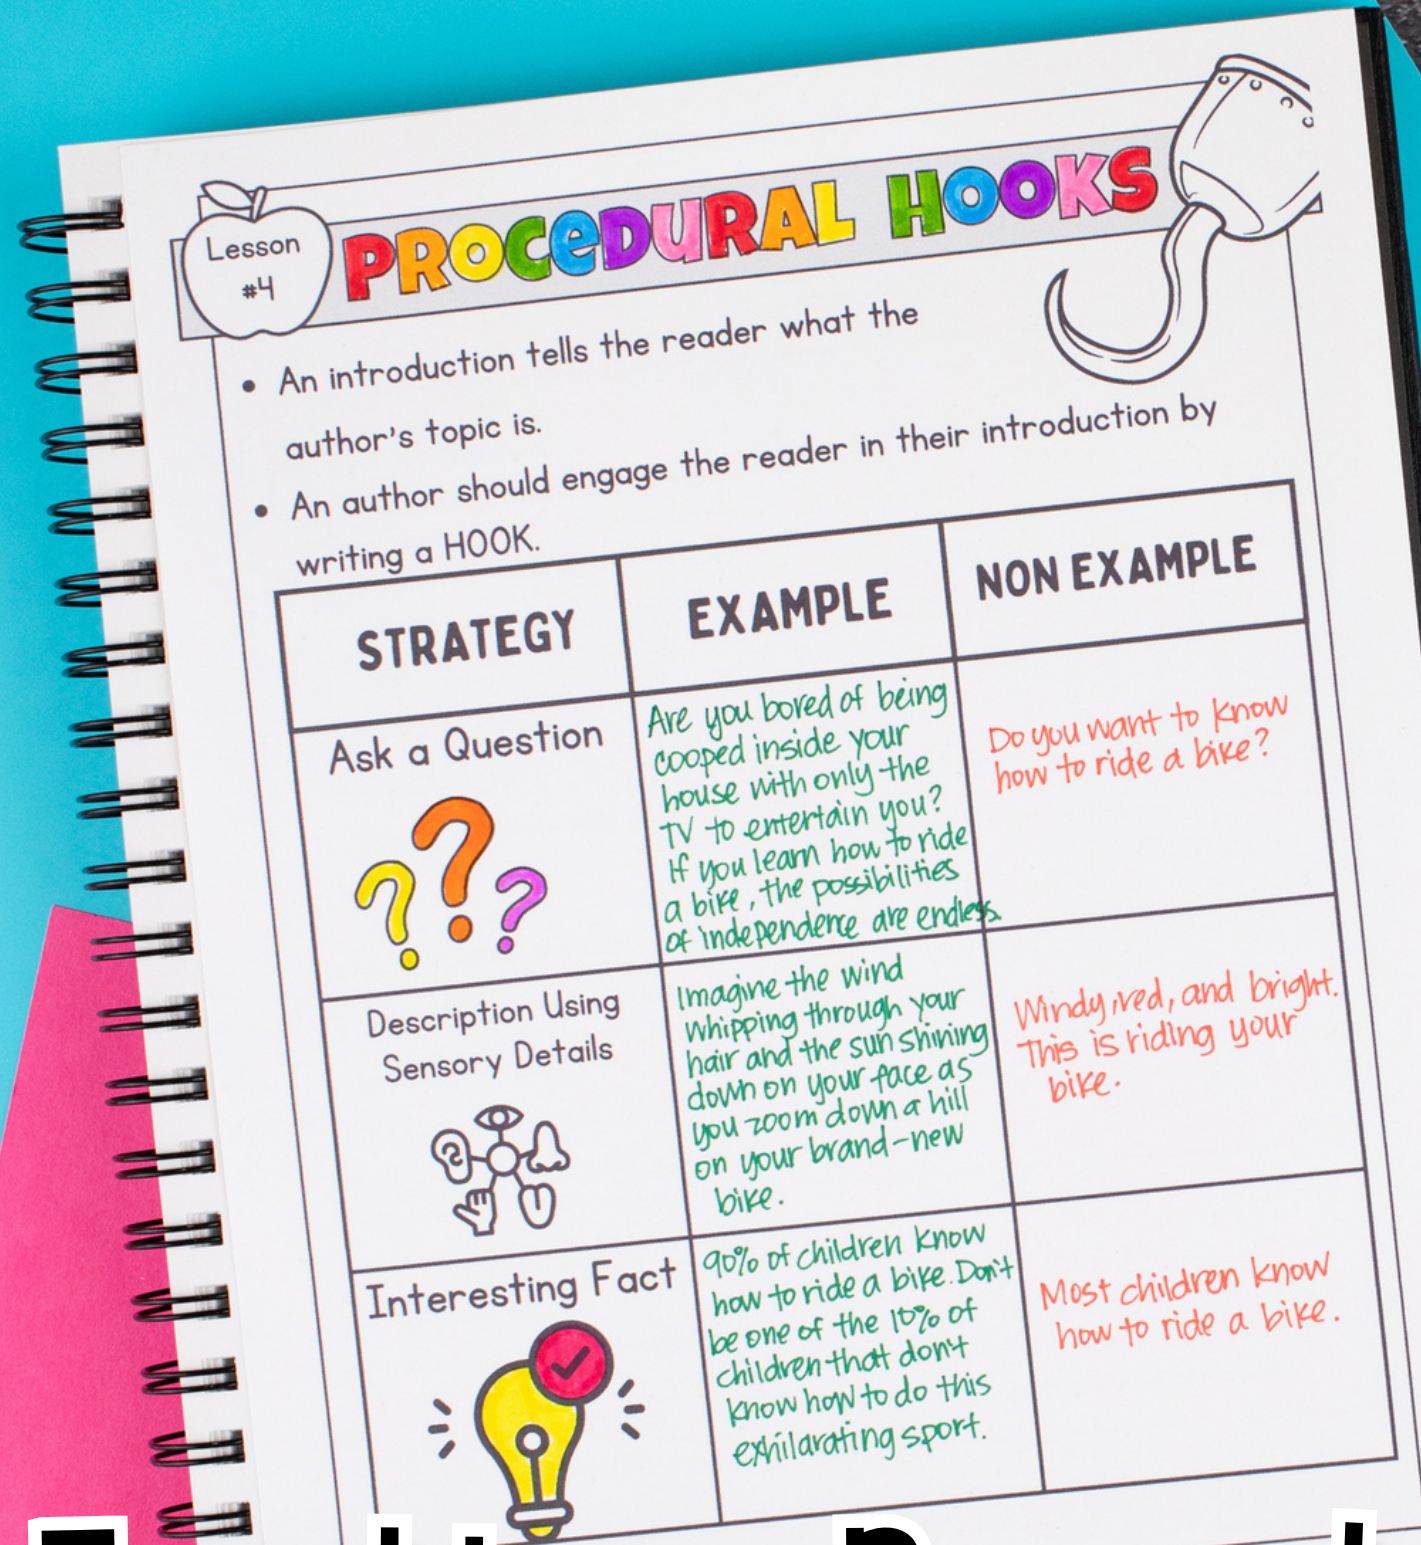 Lesson
#4
PROCEDURAL HOOKS
• An introduction tells the reader what the
author's topic is.
• An author should engage the reader in their introduction by
writing a HOOK.
STRATEGY
EXAMPLE
NON EXAMPLE
Ask a Question
Are you bored of being
cooped inside your
house with only the
TV to entertain you?
If you learn how to ride
a bike, the possibilities
of independence are endless.
Do you want to know
how to ride a bike?
Description Using
Sensory Details
Imagine the wind
whipping through your
hair and the sun shining
down on your face as
you zoom down a hill
on your brand-new
bike.
Windy, red, and bright.
This is riding your
bike.
Interesting Fact
90% of children know
how to ride a bike. Don't
be one of the 10% of
children that don't
know how to do this
exhilarating sport.
Most children know
how to ride a bike.